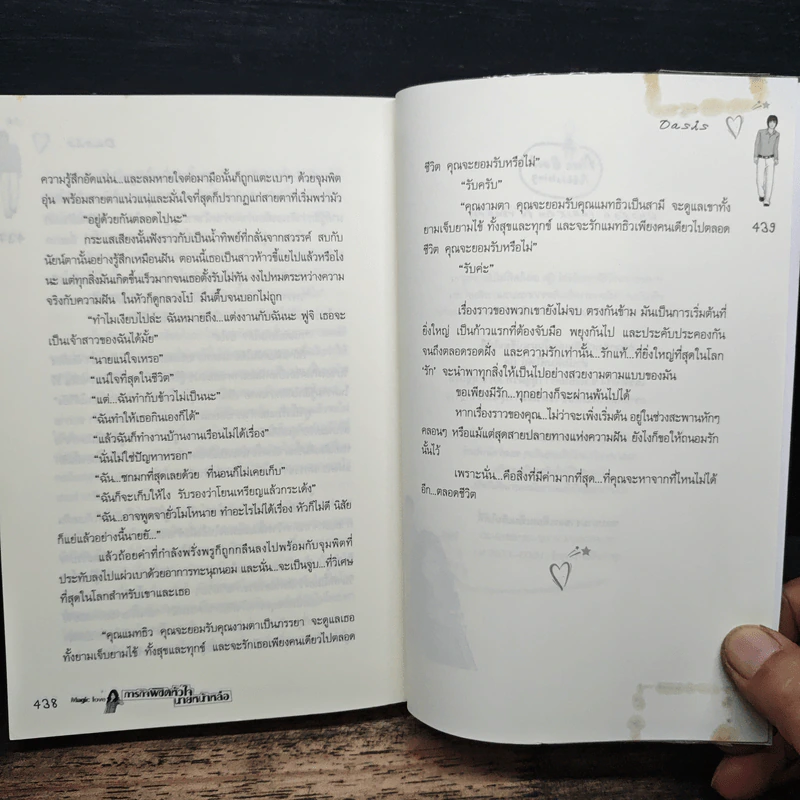 ความรู้สึกอัดแน่น...และลมหายใจต่อมามือนั้นก็ถูกแตะเบาๆ ด้วยจุมพิต
อุ่น พร้อมสายตาแน่วแน่และมั่นใจที่สุดก็ปรากฏแก่สายตาที่เริ่มพร่ามัว
“อยู่ด้วยกันตลอดไปนะ”
กระแสเสียงนั้นฟังราวกับเป็นน้ำทิพย์ที่กลั่นจากสวรรค์ สบกับ
นัยน์ตานั้นอย่างรู้สึกเหมือนฝัน ตอนนี้เธอเป็นสาวห้าวขี้แยไปแล้วหรือไง
นะ แต่ทุกสิ่งมันเกิดขึ้นเร็วมากจนเธอตั้งรับไม่ทัน งงไปหมดระหว่างความ
จริงกับความฝัน ในหัวก็ดูกลวงโบ๋ มึนตึ้บจนบอกไม่ถูก
“ทำไมเงียบไปล่ะ ฉันหมายถึง...แต่งงานกับฉันนะ ฟูจิ เธอจะ
เป็นเจ้าสาวของฉันได้มั้ย”
“นายแน่ใจเหรอ”
“แน่ใจที่สุดในชีวิต”
“แต่...ฉันทำกับข้าวไม่เป็นนะ”
“ฉันทำให้เธอกินเองก็ได้”
“แล้วฉันก็ทำงานบ้านงานเรือนไม่ได้เรื่อง”
“นั่นไม่ใช่ปัญหาหรอก”
“ฉัน...ซกมกที่สุดเลยด้วย ที่นอนก็ไม่เคยเก็บ”
“ฉันก็จะเก็บให้ไง รับรองว่าโยนเหรียญแล้วกระเด้ง”
“ฉัน...อาจพูดจายั่วโมโหนาย ทำอะไรไม่ได้เรื่อง หัวก็ไม่ดี นิสัย
ก็แย่แล้วอย่างนี้นายยั...”
แล้วถ้อยคำที่กำลังพรั่งพรูก็ถูกกลืนลงไปพร้อมกับจุมพิตที่
ประทับลงไปแผ่วเบาด้วยอาการทะนุถนอม และนั่น...จะเป็นจูบ...ที่วิเศษ
ที่สุดในโลกสำหรับเขาและเธอ
“คุณแมทธิว คุณจะยอมรับคุณงามตาเป็นภรรยา จะดูแลเธอ
ทั้งยามเจ็บยามไข้ ทั้งสุขและทุกข์ และจะรักเธอเพียงคนเดียวไปตลอด
438 Magic love การภาพิชิตหัวใจ
นายหน้าหล่อ
Dasis
ชีวิต คุณจะยอมรับหรือไม่”
“รับครับ”
“คุณงามตา คุณจะยอมรับคุณแมทธิวเป็นสามี จะดูแลเขาทั้ง
ยามเจ็บยามไข้ ทั้งสุขและทุกข์ และจะรักแมทธิวเพียงคนเดียวไปตลอด
ชีวิต คุณจะยอมรับหรือไม่”
“รับค่ะ”
439
เรื่องราวของพวกเขายังไม่จบ ตรงกันข้าม มันเป็นการเริ่มต้นที่
ยิ่งใหญ่ เป็นก้าวแรกที่ต้องจับมือ พยุงกันไป และประคับประคองกัน
จนถึงตลอดรอดฝั่ง และความรักเท่านั้น...รักแท้...ที่ยิ่งใหญ่ที่สุดในโลก
‘รัก’ จะนำพาทุกสิ่งให้เป็นไปอย่างสวยงามตามแบบของมัน
ขอเพียงมีรัก...ทุกอย่างก็จะผ่านพ้นไปได้
หากเรื่องราวของคุณ...ไม่ว่าจะเพิ่งเริ่มต้น อยู่ในช่วงสะพานหักๆ
คลอนๆ หรือแม้แต่สุดสายปลายทางแห่งความฝัน ยังไงก็ขอให้ถนอมรัก
นั้นไว้
เพราะนั่น...คือสิ่งที่มีค่ามากที่สุด...ที่คุณจะหาจากที่ไหนไม่ได้
อีก...ตลอดชีวิต